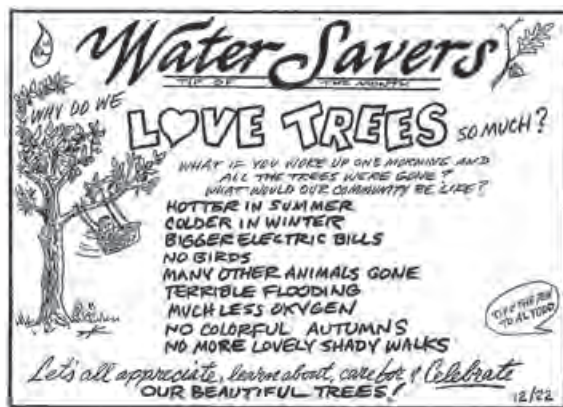 Water Savers
TIP OF THE MONTH
WHY DO WE
LOVE TREES SO MUCH?
WHAT IF YOU WOKE UP ONE MORNING AND
ALL THE TREES WERE GONE?
WHAT WOULD OUR COMMUNITY BE LIKE?
HOTTER IN SUMMER
COLDER IN WINTER
BIGGER ELECTRIC BILLS
NO BIRDS
MANY OTHER ANIMALS GONE
TERRIBLE FLOODING
MUCH LESS OXYGEN
NO COLORFUL AUTUMNS
NO MORE LOVELY SHADY WALKS
TIP OF THE PEN
TO AL TODD
Let's all appreciate, learn about, care for & Celebrate
OUR BEAUTIFUL TREES!
12/22